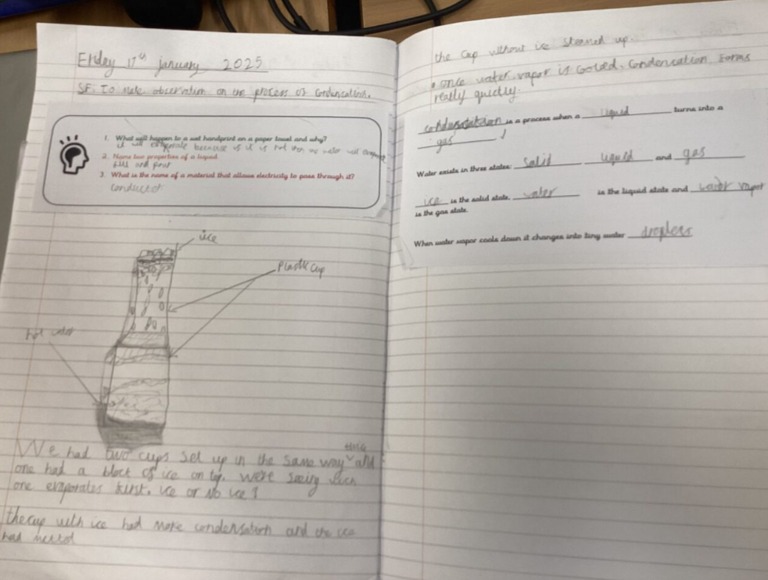 Friday 17th january 2025
SF: To make observation on the process of condensation.
1. What will happen to a wet handprint on a paper towel and why?
it will evaporate because if it is hot then the water will evaporate
2. Name two properties of a liquid
3. What is the name of a material that allows electricity to pass through it?
conductor
ice
Plastic cup
hot water
We had two cups set up in the same way and
one had a block of ice on top. Were seeing which
one evaporates first. ice or no ice?
the cup with ice had more condensation and the ice
had melted
the cup without ice steamed up.
once water vapor is cooled. Condensation forms
really quickly.
condensation is a process when a liquid turns into a
gas
Water exists in three states: solid liquid and gas
ice is the solid state, water is the liquid state and water vapor
is the gas state.
When water vapor cools down it changes into tiny water droplets